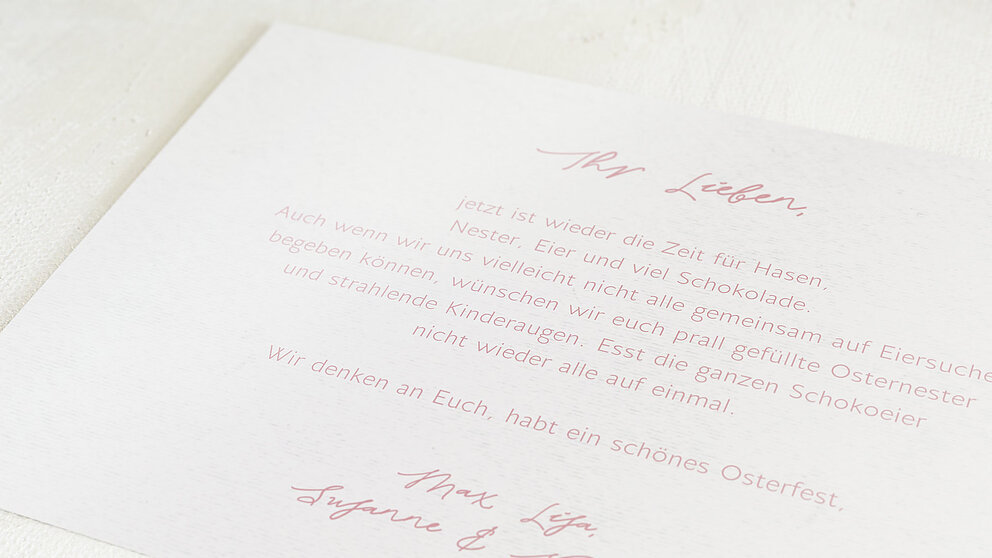 Ihr Lieben,
jetzt ist wieder die Zeit für Hasen,
Nester, Eier und viel Schokolade.
Auch wenn wir uns vielleicht nicht alle gemeinsam auf Eiersuche
begeben können, wünschen wir euch prall gefüllte Osternester
und strahlende Kinderaugen. Esst die ganzen Schokoeier
nicht wieder alle auf einmal.
Wir denken an Euch, habt ein schönes Osterfest,
Max, Lisa,
Susanne &